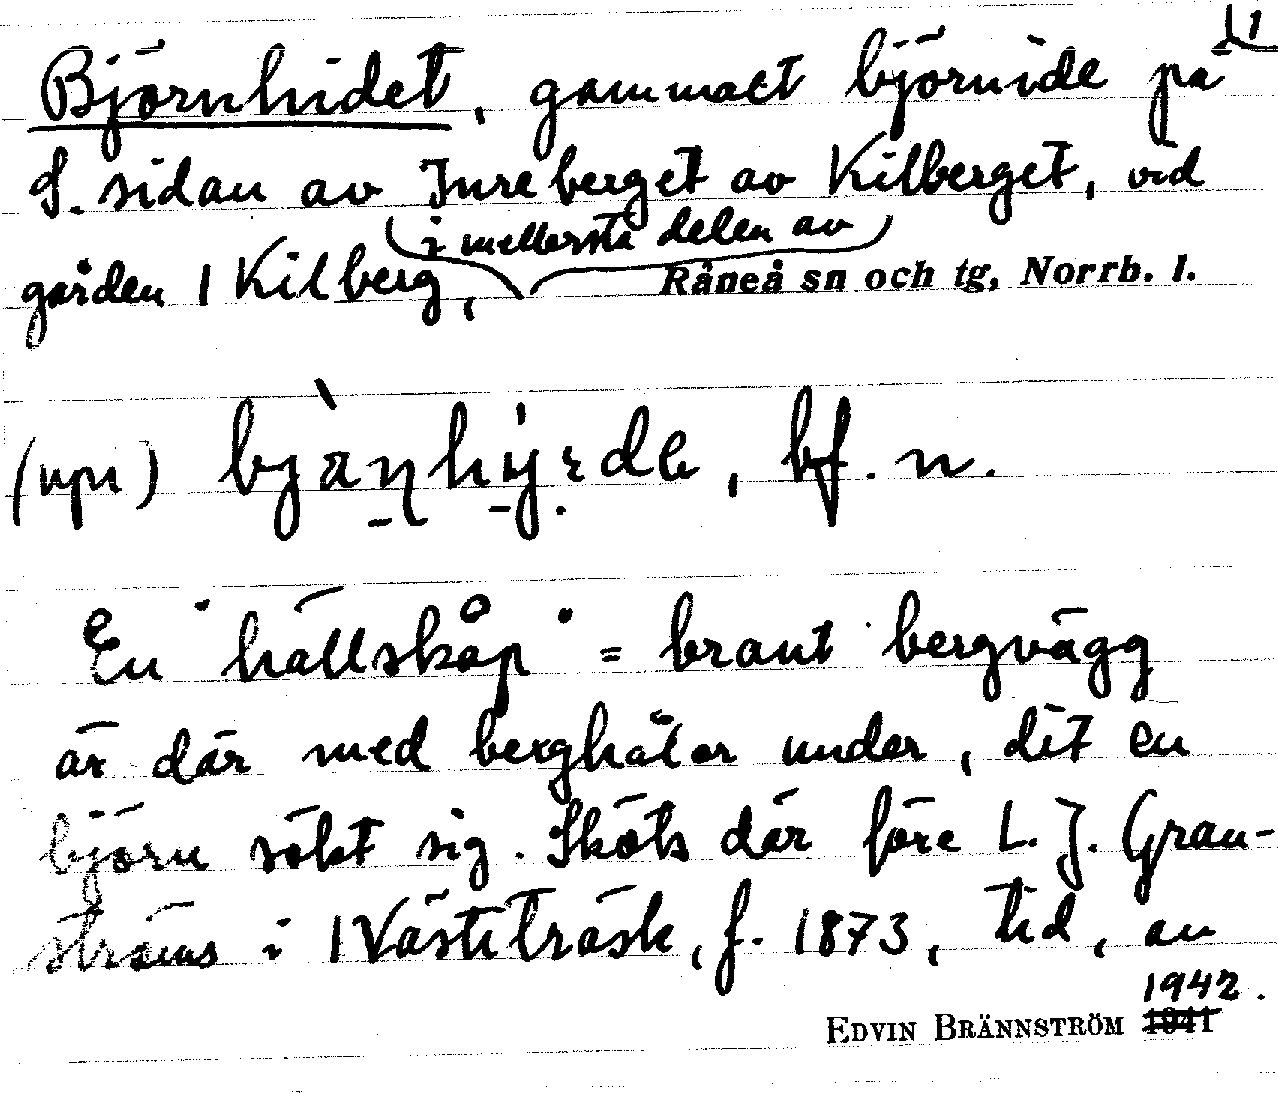 Björnhidet, gammalt björnide på
S. sidan av Inreberget av Kilberget, vid
gården 1 Kilberg, i mellersta delen av Råneå sn och tg, Norrb. l.
(upu) bjä̀ṇhy̩ɛde, bf. n.
En "hällskåp" = brant bergvägg
är där med berghålor under, dit en
björn sökt sig. Sköts där före L. J. Gran-
ströms i 1 Västiträsk, f. 1873, tid, an
EDVIN BRÄNNSTRÖM 1942.